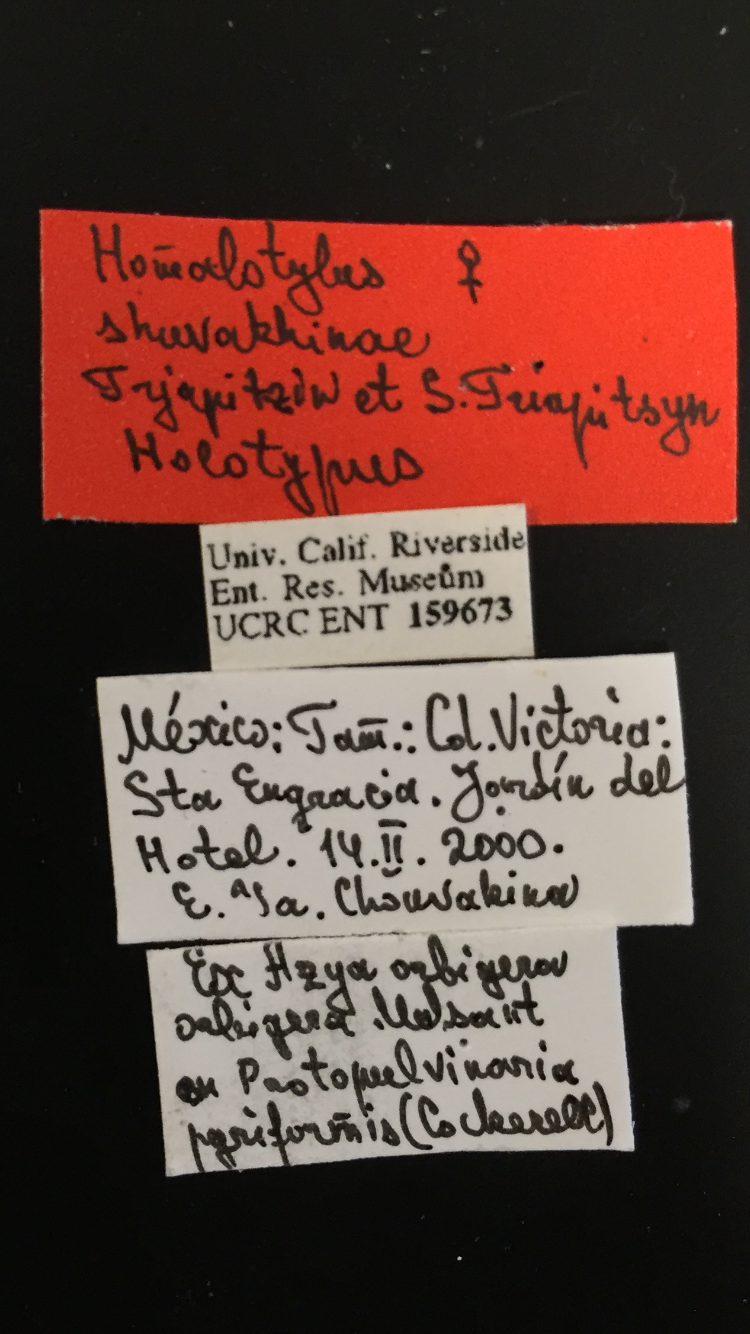 Homalotylus ♀
shuvakhinae
Trjapitzin et S. Triapitsyn
Holotypus
Univ. Calif. Riverside
Ent. Res. Museum
UCRC ENT 159673
México: Tam.: Cd. Victoria:
Sta Engracia. Jardín del
Hotel. 14.II.2000.
E. Ya. Chouvakina
Ex Azya orbigera
orbigera Mulsant
en Protopulvinaria
pyriformis (Cockerell)